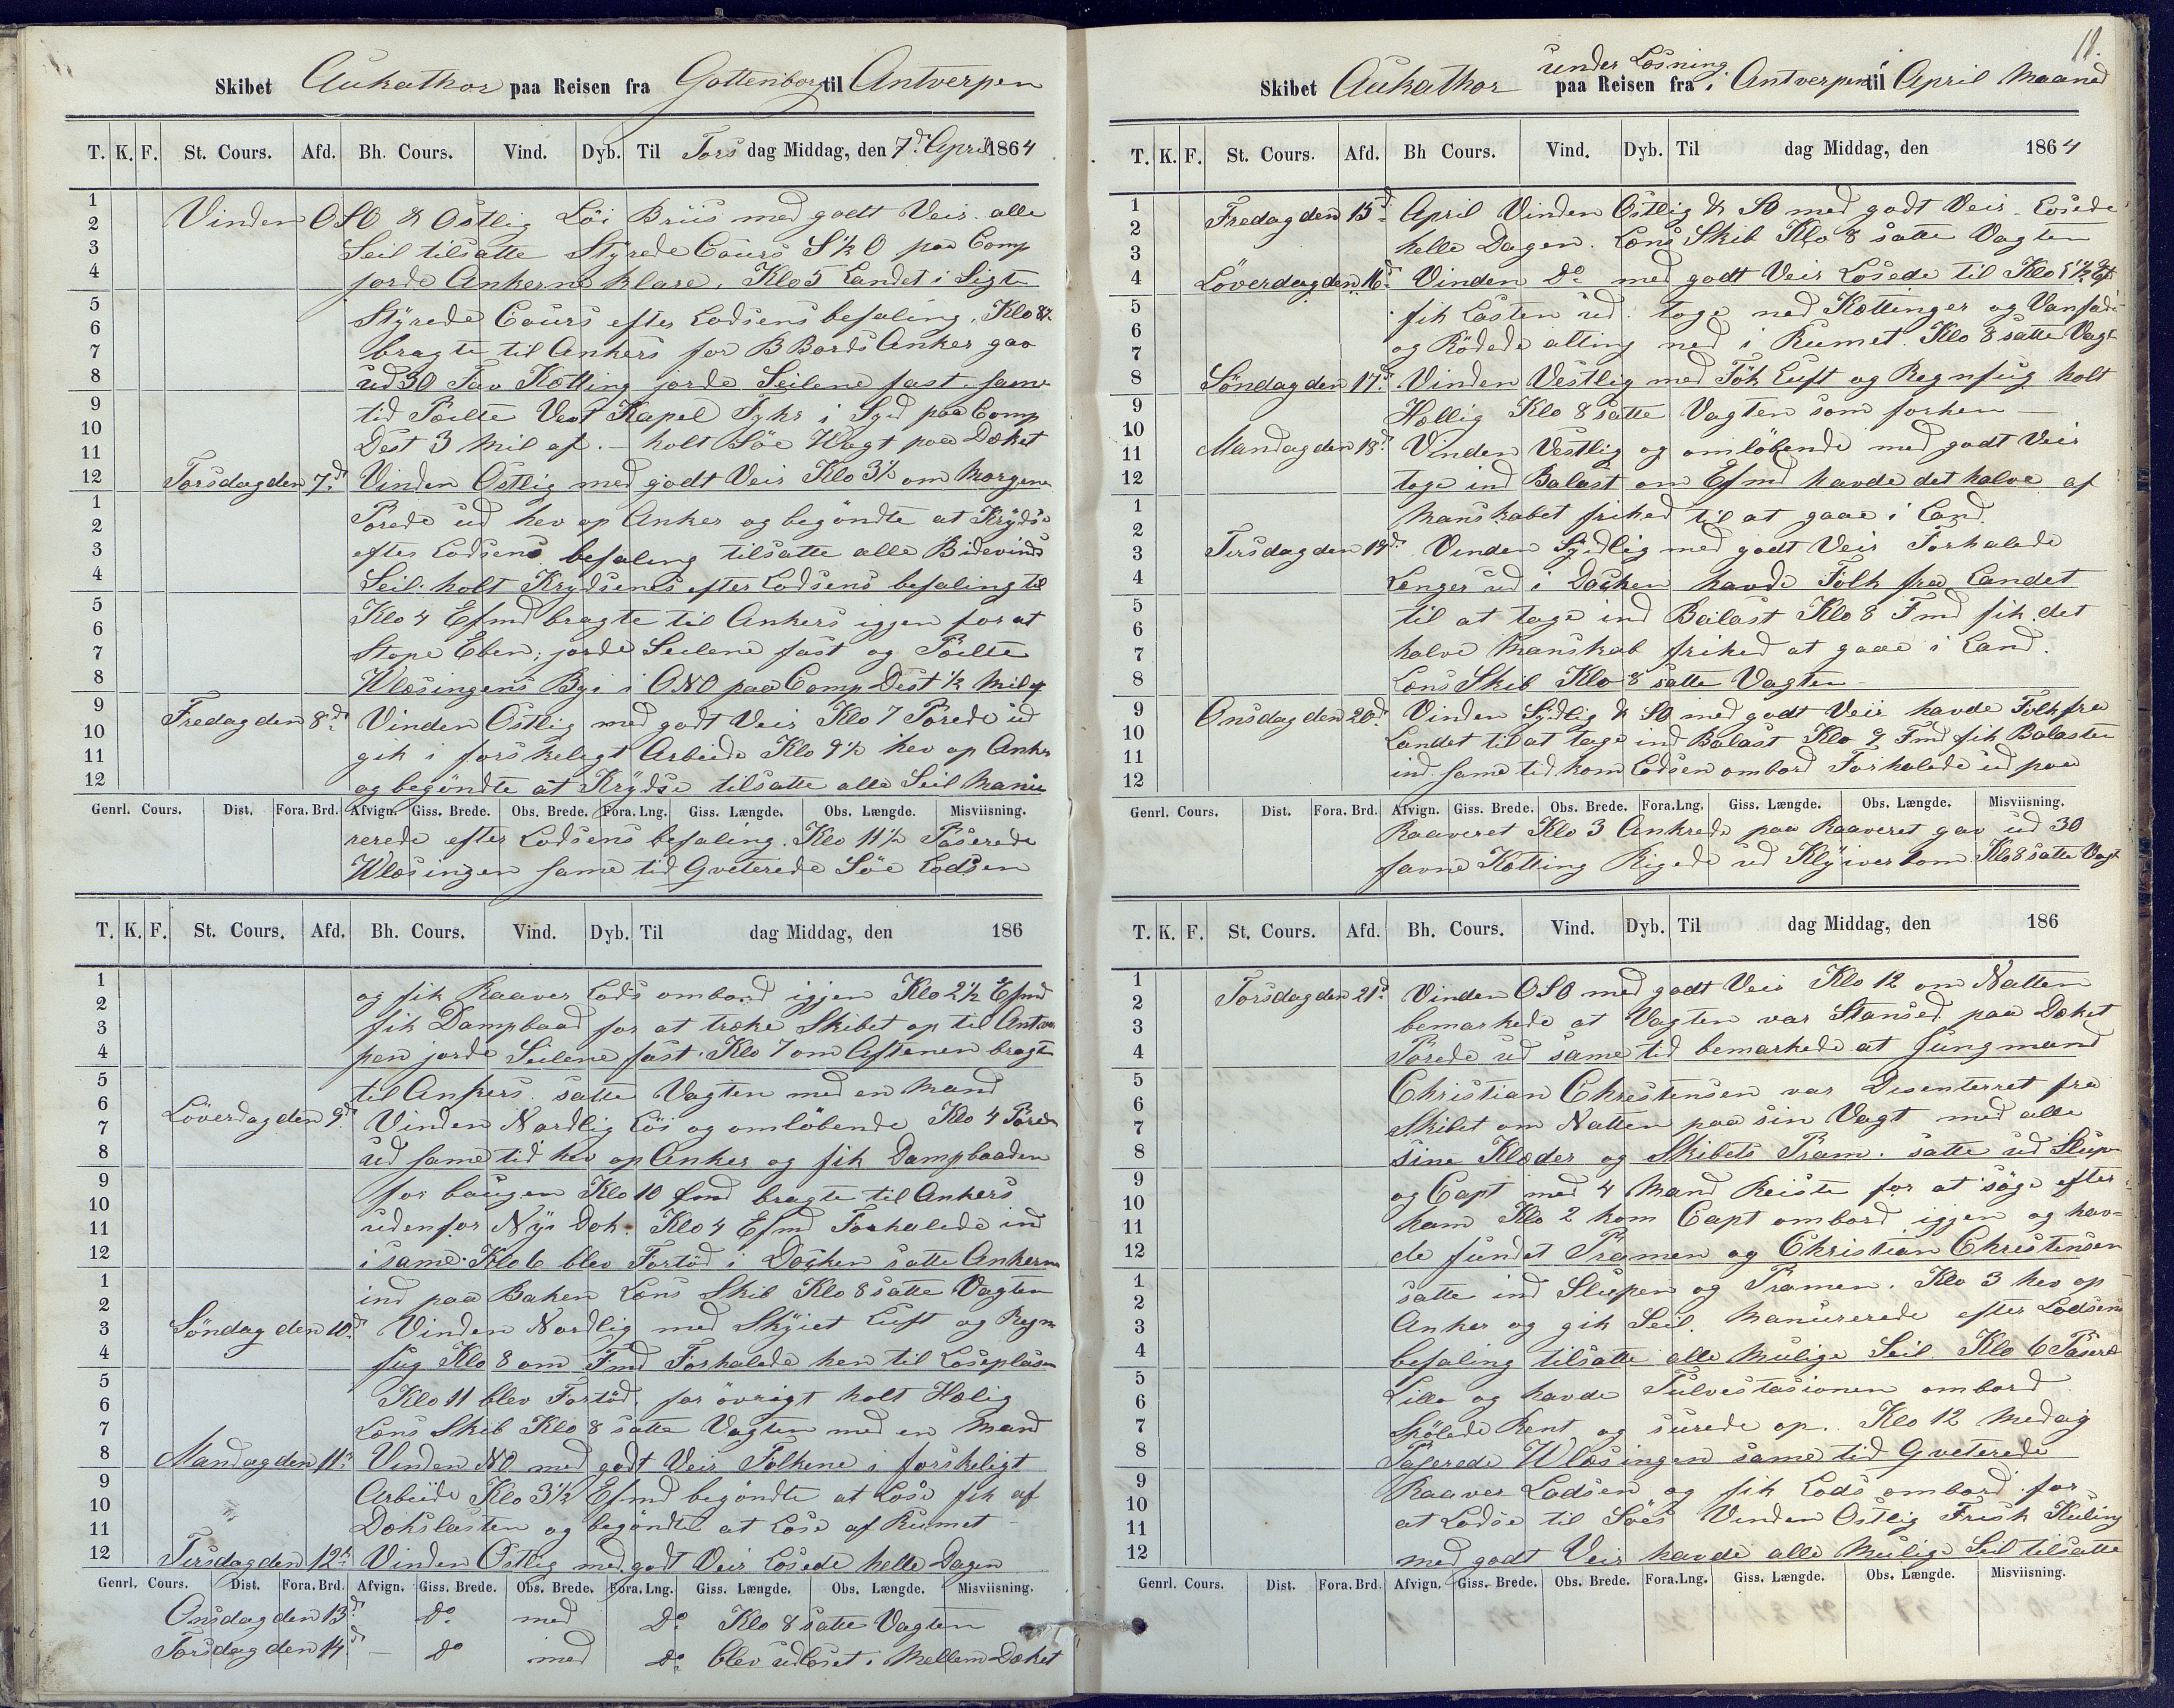 Skibet Aukathor paa Reisen fra Gottenborg til Antverpen
T. K. F. St. Cours. Afd. Bh. Cours. Vind. Dyb. Til Torsdag Middag, den 7d April 1864
1
2 Vinden OSO & Ostlig Löi Briis med godt Veir alle
3 Seil tilsatte Styrede Cours S½O paa Comp
4 jorde Ankerne klare. Klo 5 Landet i Sigte
5 Styrede Cours efter Lodsens befaling. Klo 8½
6
7 bragte til Ankers for B Bords Anker gav
8 ud 30 Fav Kötting jorde Seilene fast. same
9 tid Peilte Vest Kapel Fyhr i Syd paa Comp
10
11 Dest 3 Mil af. – holt Söe Wagt paa Dæket
12 Torsdag den 7d Vinden Ostlig med godt Veir Klo 3½ om Morgene
1 Porede ud hev op Anker og begöndte at Krydse
2
3 efter Lodsens befaling tilsatte alle Bidevinds
4 Seil: holt Krydsenes efter Lodsens befaling til
5 Klo 4 Efmd bragte til Ankers igjen for at
6
7 Stope Eben; jorde Seilene fast og Peilte
8 Wlæsingens Bye i ONO paa Comp Dest ½ Mil af
9 Fredag den 8d Vinden Ostlig med godt Veir Klo 7 Porede ud
10
11 gik i forskeligt Arbeide Klo 9½ hev op Anker
12 og begöndte at Krydse tilsatte alle Seil Manu
Genrl. Cours. Dist. Fora. Brd. Afvign. Giss. Brede. Obs. Brede. Fora. Lng. Giss. Længde. Obs. Længde. Misviisning.
rerede efter Lodsens befaling. Klo 11½ Paserede
Wlæsingen same tid Qveterede Söe Lodsen
T. K. F. St. Cours. Afd. Bh. Cours. Vind. Dyb. Til dag Middag, den 186
1 og fik Raaver Lods ombord igjen Klo 2½ Efmd
2
3 fik Dampbaad for at træke Skibet op til Antver
4 pen jorde Seilene fast. Klo 7 om Aftenen bragte
5 til Ankers. satte Vagten med en Mand
6 Löverdag den 9d
7 Vinden Nordlig Löi og omlöbende Klo 4 Porede
8 ud same tid hev op Anker og fik Dampbaaden
9 for baugen Klo 10 fmd bragte til Ankers
10
11 udenfor Nÿe Dok. Klo 4 Efmd Forhalede ind
12 i same. Klo 6 blev Fortöd i Docken satte Ankerne
1 ind paa Baken Læns Skib Klo 8 satte Vagten
2
3 Söndag den 10d Vinden Nordlig med Skÿiet Luft og Regn
4 fug Klo 8 om Fmd Forhalede hen til Losepläsen
5 Klo 11 blev Fortöd. for övrigt holt Hælig
6
7 Læns Skib Klo 8 satte Vagten med en Mand
8 Mandag den 11d Vinden NO med godt Veir Folkene i forskeligt
9 Arbeide Klo 3½ Efmd begöndte at Lose fik af
10
11 Dækslasten og begöndte at Lose af Rumet –
12 Tirsdag den 12d Vinden Ostlig med godt Veir Losede helle Dagen
Genrl. Cours. Dist. Fora. Brd. Afvign. Giss. Brede. Obs. Brede. Fora. Lng. Giss. Længde. Obs. Længde. Misviisning.
Onsdag den 13d do med Do Klo 8 satte Vagten
Torsdag den 14d – do med do blev udloset i Mellem Dæket
11.
under Losning
Skibet Aukathor paa Reisen fra i Antverpen til April Maaned
T. K. F. St. Cours. Afd. Bh Cours. Vind. Dyb. Til dag Middag, den 1864
1 Fredag den 15d April Vinden Ostlig & SO med godt Veir – Losede
2
3 helle Dagen. Læns Skib Klo 8 satte Vagten
4 Löverdag den 16d Vinden Do med godt Veir Losede til Klo 5½ Ef
5 fik Lasten ud. toge ned Kættinger og
6
7 og Rödede alting ned i Rumet. Klo 8 satte Vagt
8 Söndag den 17d Vinden Vestlig med Tök Luft og Regnfug holt
9 Hællig Klo 8 satte Vagten som forhen –
10
11 Mandag den 18d Vinden Vestlig og omlöbende med godt Veir
12 toge ind Balast om Efmd havde det halve af
1 Manskabet frihed til at gaae i Land.
2
3 Tirsdag den 19d Vinden Sydlig med godt Veir Forhalede
4 Lenger ud i Docken havde Folk fra Landet
5 til at tage ind Balast Klo 8 Fmd fik det
6
7 halve Manskab frihed at gaae i Land.
8 Læns Skib Klo 8 satte Vagten –
9 Onsdag den 20d Vinden Sydlig & SO med godt Veir havde Folk fra
10 Landet til at tage ind Balast Klo 9 Fmd fik Balasten
11
12 ind same tid kom Lodsen ombord Forhalede ud paa
Genrl. Cours. Dist. Fora. Brd. Afvign. Giss. Brede. Obs. Brede. Fora.Lng. Giss. Længde. Obs. Længde. Misviisning.
Raaveret Klo 3 Ankrede paa Raaveret gav ud 30
favne Kætting Rigede ud Klÿiver bom Klo 8 satte Vagt
T. K. F. St. Cours. Afd. Bh. Cours. Vind. Dyb. Til dag Middag, den 186
1 Torsdag den 21d Vinden OSO med godt Veir Klo 12 om Natten
2
3 bemærkede at Vagten var Stansed paa Dæket
4 Porede ud same tid bemærkede at Jungmand
5 Christian Chrestensen var Desenterret fra
6
7 Skibet om Natten paa sin Vagt med alle
8 sine Klæder og Skibets Pram. satte ud Slupen
9 og Capt med 4 Mand Reiste for at söge efter
10
11 ham Klo 2 kom Capt ombord igjen og hav-
12 de fundet Pramen og Christian Chrestensen
1 satte ind Slupen og Pramen. Klo 3 hev op
2
3 Anker og gik Seil. Manurerede efter Lodsens
4 befaling tilsatte alle Mulige Seil. Klo 6 Paserede
5 Lillo og havde Tulvestasionen ombord
6
7 Spölede Rent og surede op. Klo 12 Medag
8 Paserede Wlæsingen same tid Qveterede
9 Raaver Lodsen og fik Lods ombord for
10
11 at Lodse til Söes Vinden Ostlig Frisk Kuling
12 med godt Veir havde alle Mulige Seil tilsatte
Genrl. Cours. Dist. Fora. Brd. Afvign. Giss. Brede. Obs. Brede. Fora.Lng. Giss. Længde. Obs. Længde. Misviisning.